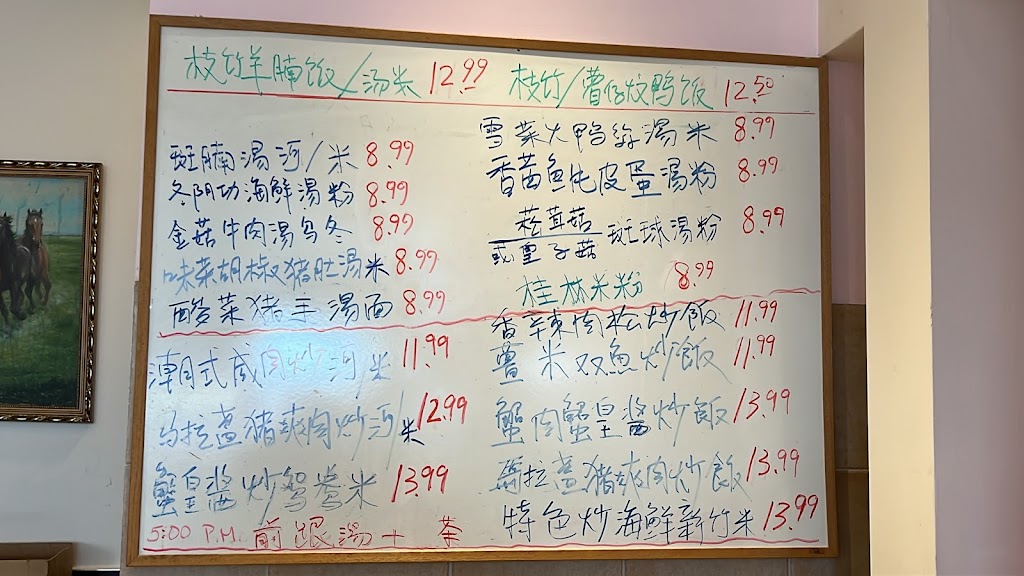 枝竹羊腩饭/汤米 12.99
斑腩湯河/米 8.99
冬阴功海鮮湯粉 8.99
金菇牛肉湯乌冬 8.99
味菜胡椒猪肚湯米 8.99
酸菜猪手湯面 8.99
潮式咸肉炒河/米 11.99
马拉盞猪爽肉炒河/米 12.99
蟹皇醬炒鸳鸯米 13.99
5:00 P.M. 前跟湯十茶
枝竹/曹仔炆鸭饭 12.50
雪菜火鸭絲湯米 8.99
香茜鱼肫皮蛋湯粉 8.99
菘茸菇
或皇子菇 斑球湯粉 8.99
桂林米粉 8.99
香辣肉松炒飯 11.99
薑米双魚炒飯 11.99
蟹肉蟹皇醬炒飯 13.99
馬拉盞猪爽肉炒飯 13.99
特色炒海鮮新竹米 13.99